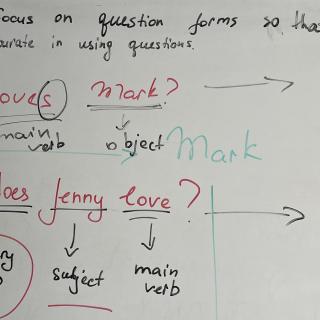 focus on question forms so that
urate in using questions.
oves Mark?
main verb object Mark
oes Jenny love?
ry subject main verb